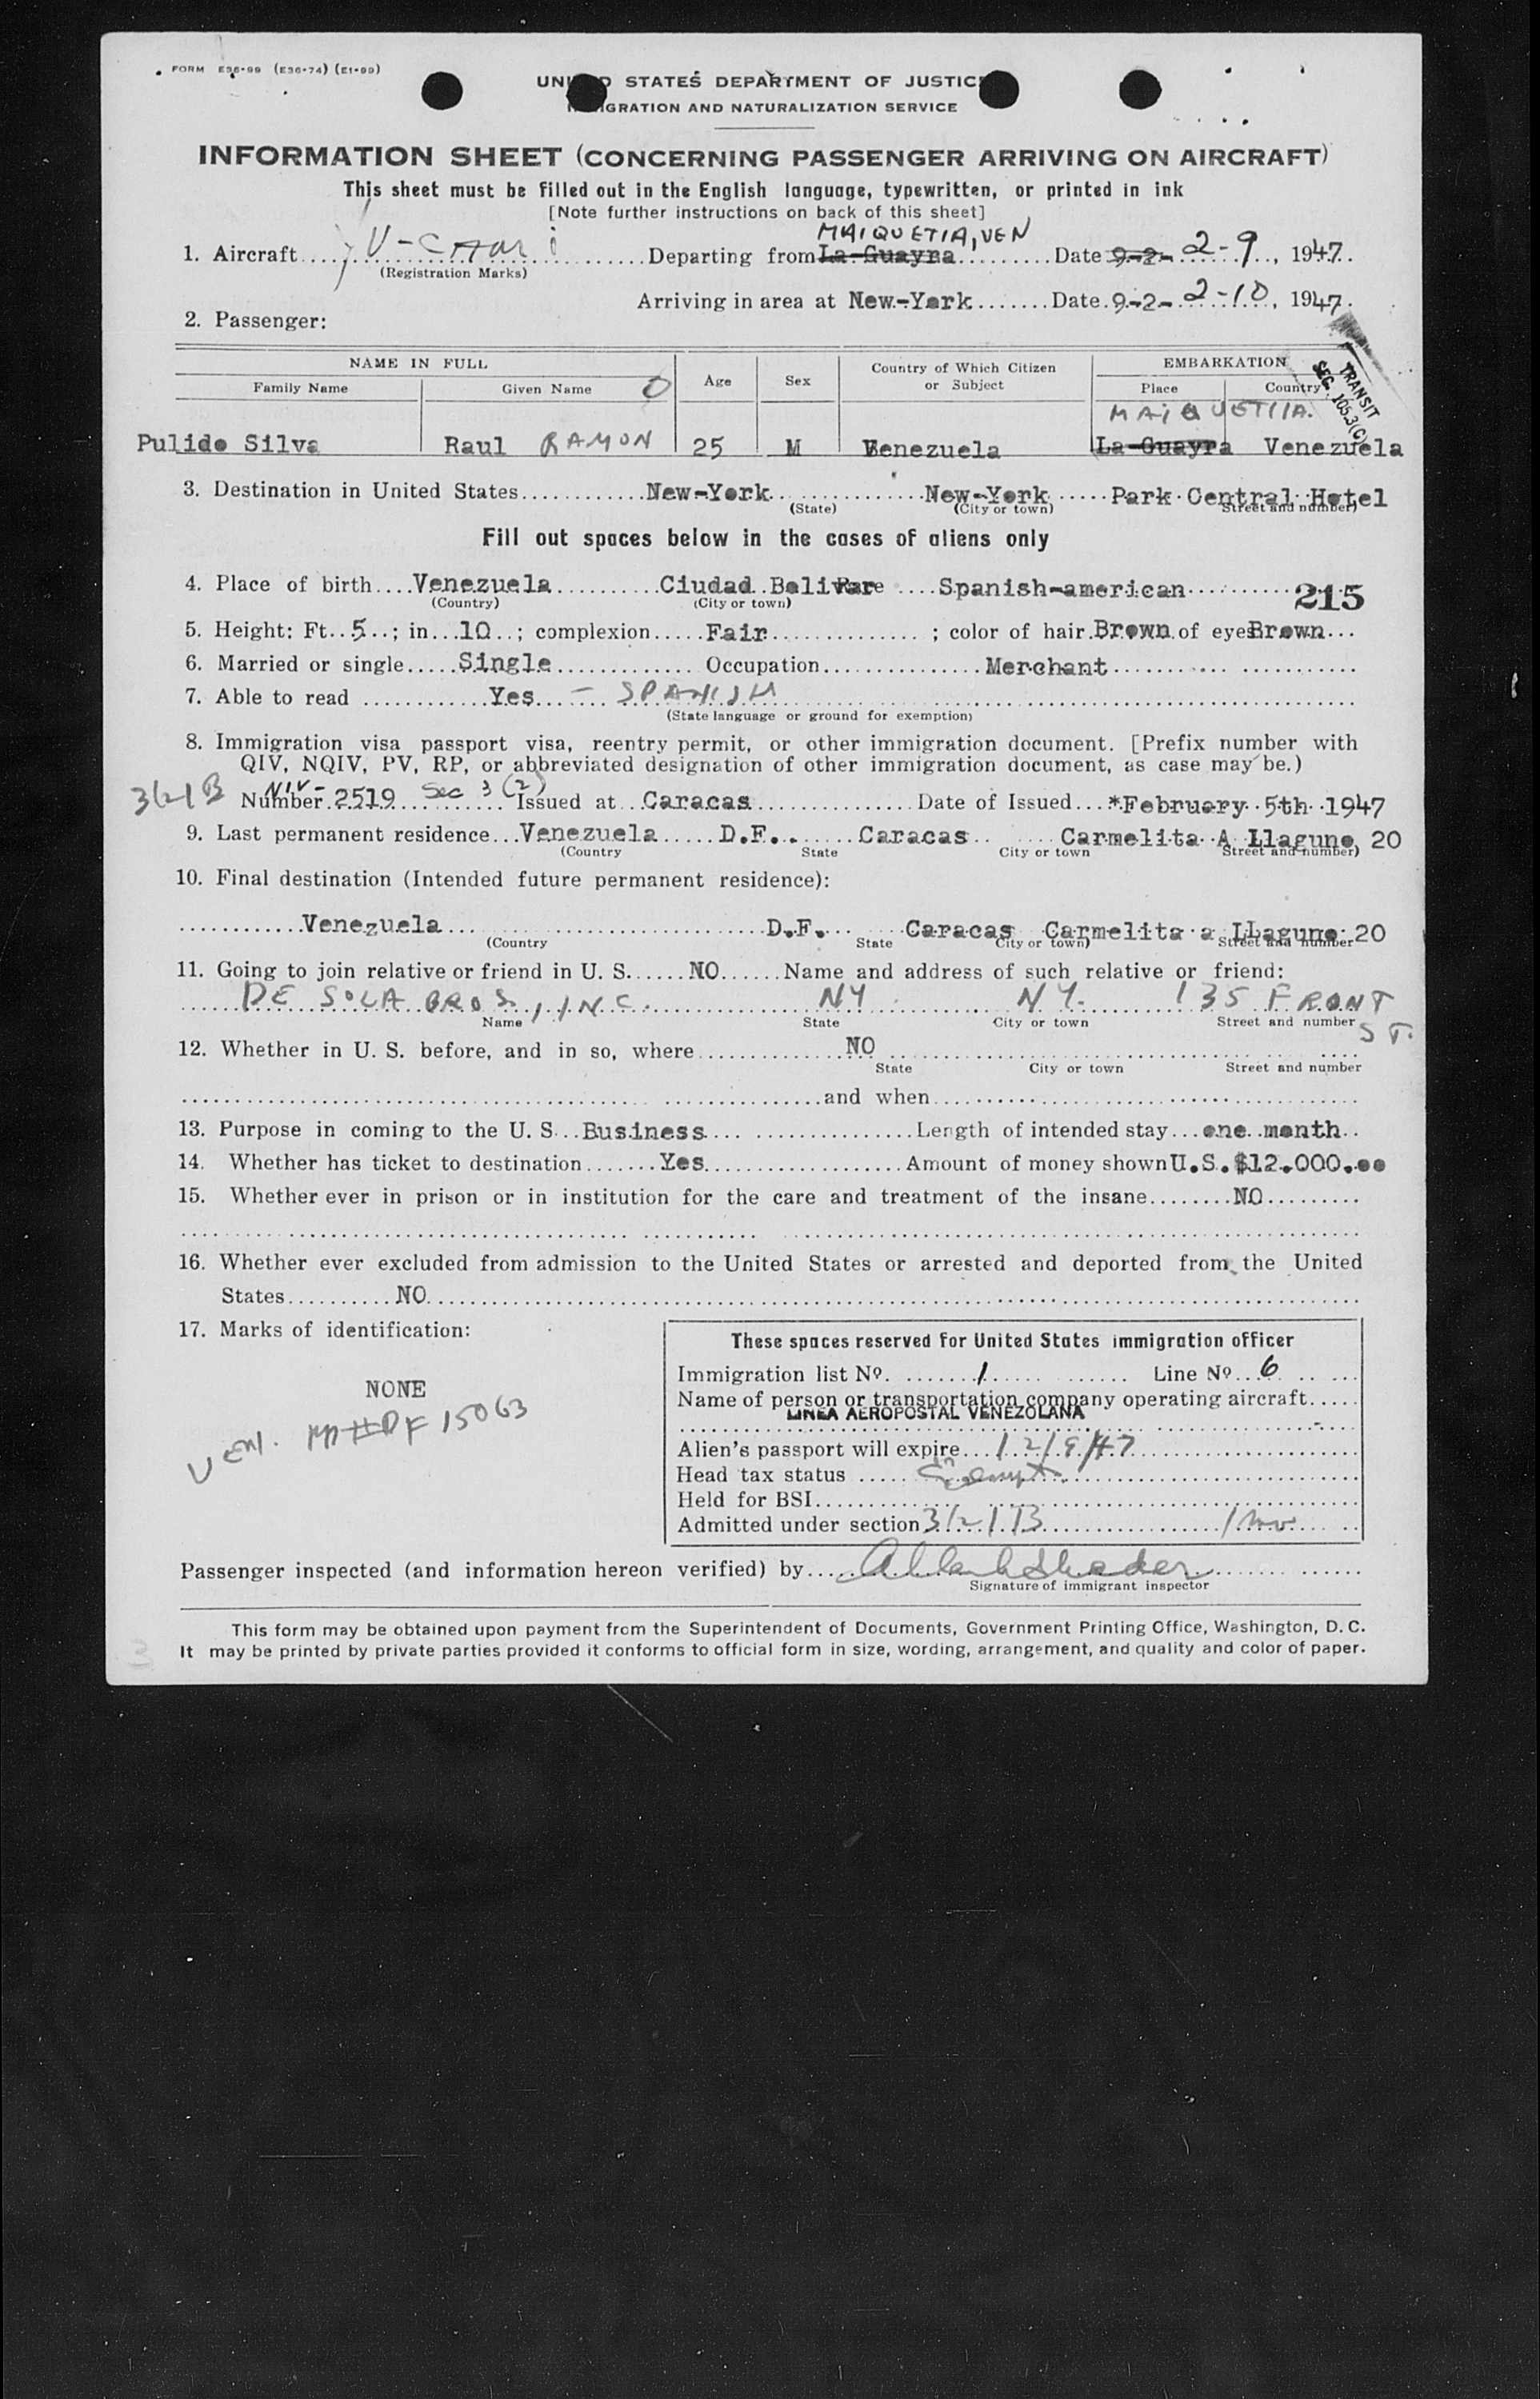 FORM E36-99 (E36-74) (E1-99)
UNITED STATES DEPARTMENT OF JUSTICE
IMMIGRATION AND NATURALIZATION SERVICE
INFORMATION SHEET (CONCERNING PASSENGER ARRIVING ON AIRCRAFT)
This sheet must be filled out in the English language, typewritten, or printed in ink
[Note further instructions on back of this sheet]
MAIQUETIA, VEN
1. Aircraft Departing from La-Guayra Date 9-2- 2-9, 1947.
(Registration Marks)
Arriving in area at New-York Date 9-2- 2-10, 1947.
2. Passenger:
TRANSIT
SEC. 105.3(C)
NAME IN FULL Age Sex Country of Which Citizen or Subject EMBARKATION
Family Name Given Name Place Country
MAIQUETIIA.
Pulido Silva Raul RAMON 25 M Venezuela La-Guayra Venezuela
3. Destination in United States New-York New-York Park Central Hotel
(State) (City or town) Street and number)
Fill out spaces below in the cases of aliens only
4. Place of birth Venezuela Ciudad Bolivar Race Spanish-american 215
(Country) (City or town)
5. Height: Ft. 5; in. 10; complexion Fair; color of hair Brown of eyes Brown
6. Married or single Single Occupation Merchant
7. Able to read Yes - SPANISH
(State language or ground for exemption)
8. Immigration visa passport visa, reentry permit, or other immigration document. [Prefix number with
QIV, NQIV, PV, RP, or abbreviated designation of other immigration document, as case may be.)
3/2/B NIV- Number 2519 Sec 3 (2) Issued at Caracas Date of Issued *February 5th 1947
9. Last permanent residence Venezuela D.F. Caracas Carmelita A Llaguno 20
(Country State City or town Street and number)
10. Final destination (Intended future permanent residence):
Venezuela D.F. Caracas Carmelita a Llaguno 20
(Country State City or town) Street and number
11. Going to join relative or friend in U. S. NO Name and address of such relative or friend:
DE SOLA BROS., INC. NY NY. 135 FRONT ST.
Name State City or town Street and number
12. Whether in U. S. before, and in so, where NO
State City or town Street and number
and when
13. Purpose in coming to the U. S. Business Length of intended stay one month
14. Whether has ticket to destination Yes Amount of money shown U.S. $12.000.oo
15. Whether ever in prison or in institution for the care and treatment of the insane NO
16. Whether ever excluded from admission to the United States or arrested and deported from the United
States NO
17. Marks of identification:
NONE
Ven. PP#DF 15063
These spaces reserved for United States immigration officer
Immigration list No. 1 Line No. 6
Name of person or transportation company operating aircraft
LINEA AEROPOSTAL VENEZOLANA
Alien's passport will expire 12/9/47
Head tax status Exempt
Held for BSI
Admitted under section 3/2/B 1 mo
Passenger inspected (and information hereon verified) by
Signature of immigrant inspector
This form may be obtained upon payment from the Superintendent of Documents, Government Printing Office, Washington, D. C.
It may be printed by private parties provided it conforms to official form in size, wording, arrangement, and quality and color of paper.